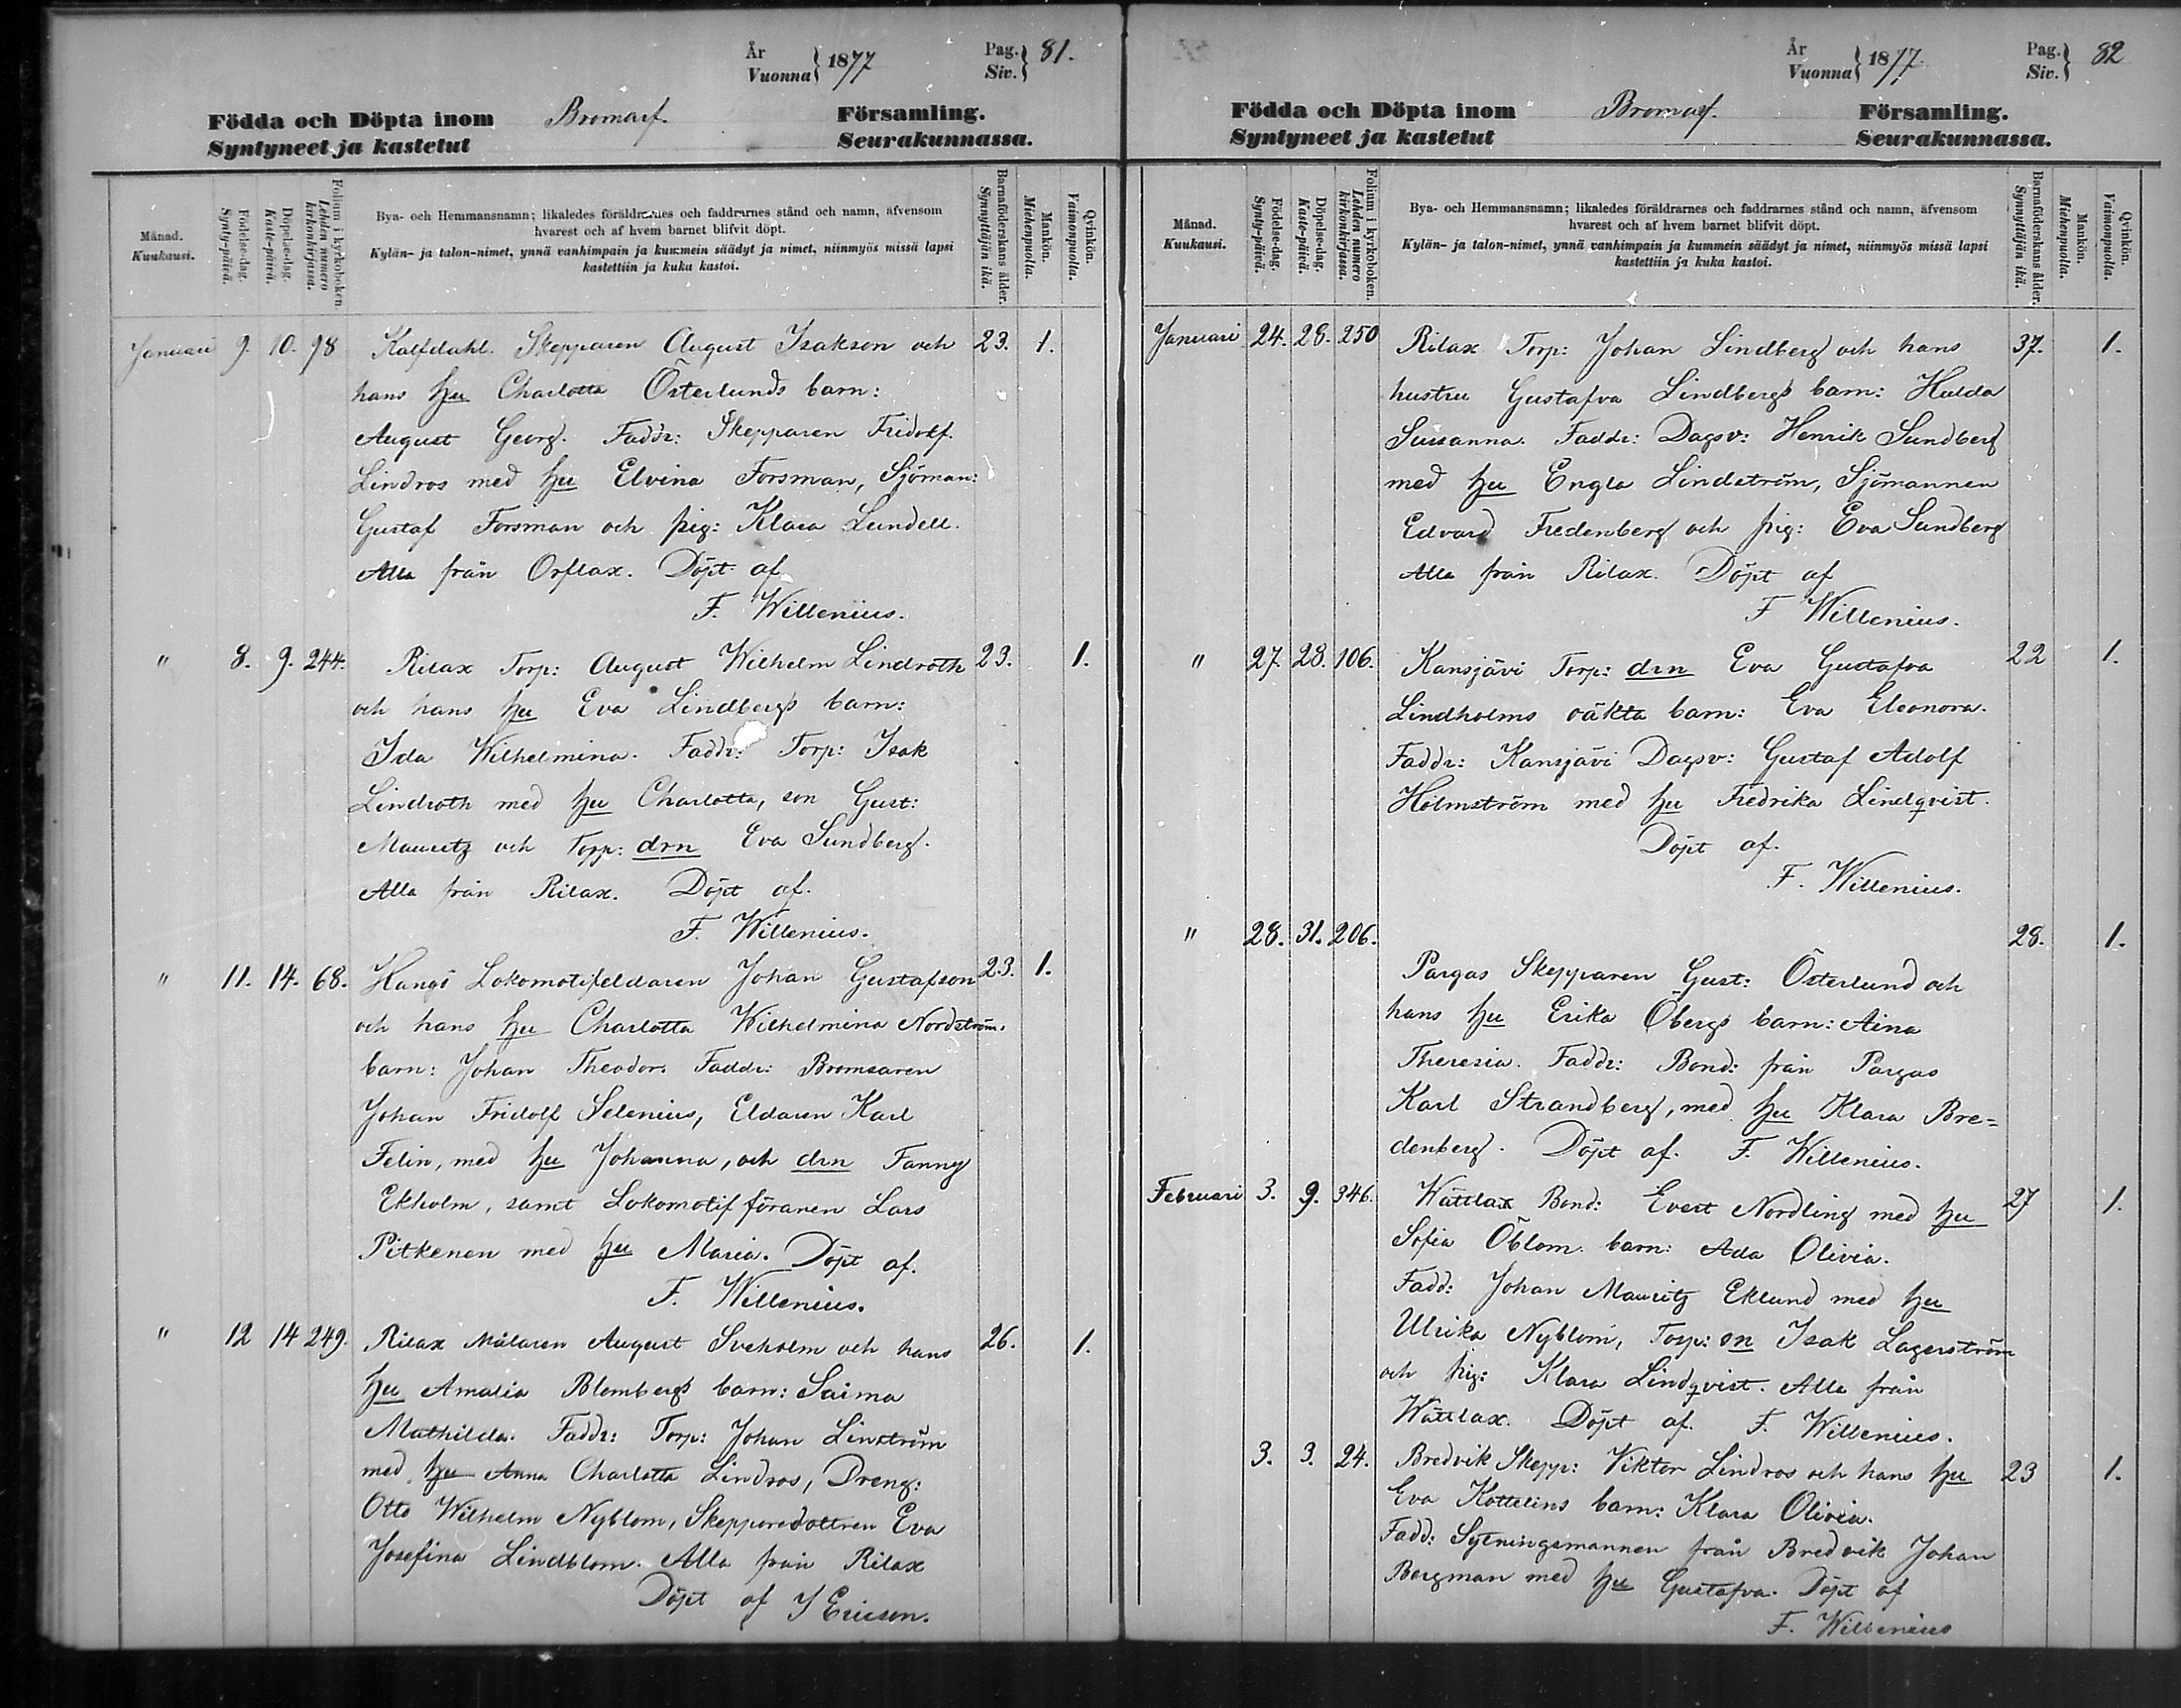 År
Vuonna } 1877
Pag.
Siv. } 81.
Födda och Döpta inom Bromarf. Församling.
Syntyneet ja kastetut Seurakunnassa.
Månad.
Kuukausi.
Födelse-dag.
Synty-päivä.
Döpelse-dag.
Kaste-päivä.
Folium i kyrkoboken.
Lehden numero
kirkonkirjassa.
Bya- och Hemmansnamn; likaledes föräldrarnes och faddrarnes stånd och namn, äfvensom
hvarest och af hvem barnet blifvit döpt.
Kylän- ja talon-nimet, ynnä vanhimpain ja kummein säädyt ja nimet, niinmyös missä lapsi
kastettiin ja kuka kastoi.
Barnaföderskans ålder.
Synnyttäjän ikä.
Mankön.
Miehenpuolia.
Qvinkön.
Vaimonpuolia.
Januari 9. 10. 98 Kalfdahl. Skepparen August Isakson och 23. 1.
hans hu Charlotta Österlunds barn:
August Georg. Faddr: Skepparen Fridolf.
Lindros med hu Elvina Forsman, Sjöman:
Gustaf Forsman och pig: Klara Lundell.
Alla från Orflax. Döpt af
F. Willenius.
" 8. 9. 244. Rilax Torp: August Wilhelm Lindroth 23. 1.
och hans hu Eva Lindbergs barn:
Ida Wilhelmina. Faddr: Torp: Isak
Lindroth med hu Charlotta, son Gust:
Mauritz och Torp: drn Eva Sundberg.
Alla från Rilax. Döpt af.
F. Willenius.
" 11. 14. 68. Hangö Lokomotifeldaren Johan Gustafson 23. 1.
och hans hu Charlotta Wilhelmina Nordström.
barn: Johan Theodor. Faddr: Bromsaren
Johan Fridolf Selenius, Eldaren Karl
Felin, med hu Johanna, och drn Fanny
Ekholm, samt Lokomotif föraren Lars
Pitkenen med hu Maria. Döpt af.
F. Willenius.
" 12 14 249. Rilax Målaren August Sveholm och hans 26. 1.
hu Amalia Blombergs barn: Saima
Mathilda. Faddr: Torp: Johan Linström
med hu Anna Charlotta Lindros, Dreng:
Otto Wilhelm Nyblom, Skepparedottren Eva
Josefina Lindblom. Alla från Rilax
Döpt af J Ericson.
År
Vuonna } 1877.
Pag.
Siv. } 82
Födda och Döpta inom Bromarf. Församling.
Syntyneet ja kastetut Seurakunnassa.
Månad.
Kuukausi.
Födelse-dag.
Synty-päivä.
Döpelse-dag.
Kaste-päivä.
Folium i kyrkoboken.
Lehden numero
kirkonkirjassa.
Bya- och Hemmansnamn; likaledes föräldrarnes och faddrarnes stånd och namn, äfvensom
hvarest och af hvem barnet blifvit döpt.
Kylän- ja talon-nimet, ynnä vanhimpain ja kummein säädyt ja nimet, niinmyös missä lapsi
kastettiin ja kuka kastoi.
Barnaföderskans ålder.
Synnyttäjän ikä.
Mankön.
Miehenpuolia.
Qvinkön.
Vaimonpuolia.
Januari 24. 28. 250 Rilax Torp: Johan Lindberg och hans 37. 1.
hustru Gustafva Lindbergs barn: Hulda
Susanna. Faddr: Dagsv: Henrik Sundberg
med hu Engla Lindström, Sjömannen
Edvard Fredenberg och pig: Eva Sundberg
Alla från Rilax. Döpt af
F Willenius.
" 27. 28. 106. Kansjävi Torp: drn Eva Gustafva 22 1.
Lindholms oäkta barn: Eva Eleonora.
Faddr: Kansjävi Dagsv: Gustaf Adolf
Holmström med hu Fredrika Lindqvist.
Döpt af.
F. Willenius.
" 28. 31. 206. 28. 1.
Pargas Skepparen Gust: Österlund och
hans hu Erika Öbergs barn: Aina
Theresia. Faddr: Bond: från Pargas
Karl Strandberg, med hu Klara Bre-
denberg. Döpt af. F. Willenius.
Februari 3. 9. 346. Wättlax Bond: Evert Nordling med hu 27 1.
Sofia Öblom. barn: Ada Olivia.
Fadd: Johan Mauritz Eklund med hu
Ulrika Nyblom, Torp: sn Isak Lagerström
och pig: Klara Lindqvist. Alla från
Wättlax. Döpt af. F. Willenius.
3. 3. 24. Bredvik Skepp: Viktor Lindros och hans hu 23 1.
Eva Kottelins barn: Klara Olivia.
Fadd: Sytningsmannen från Bredvik Johan
Bergman med hu Gustafva. Döpt af
F. Willenius